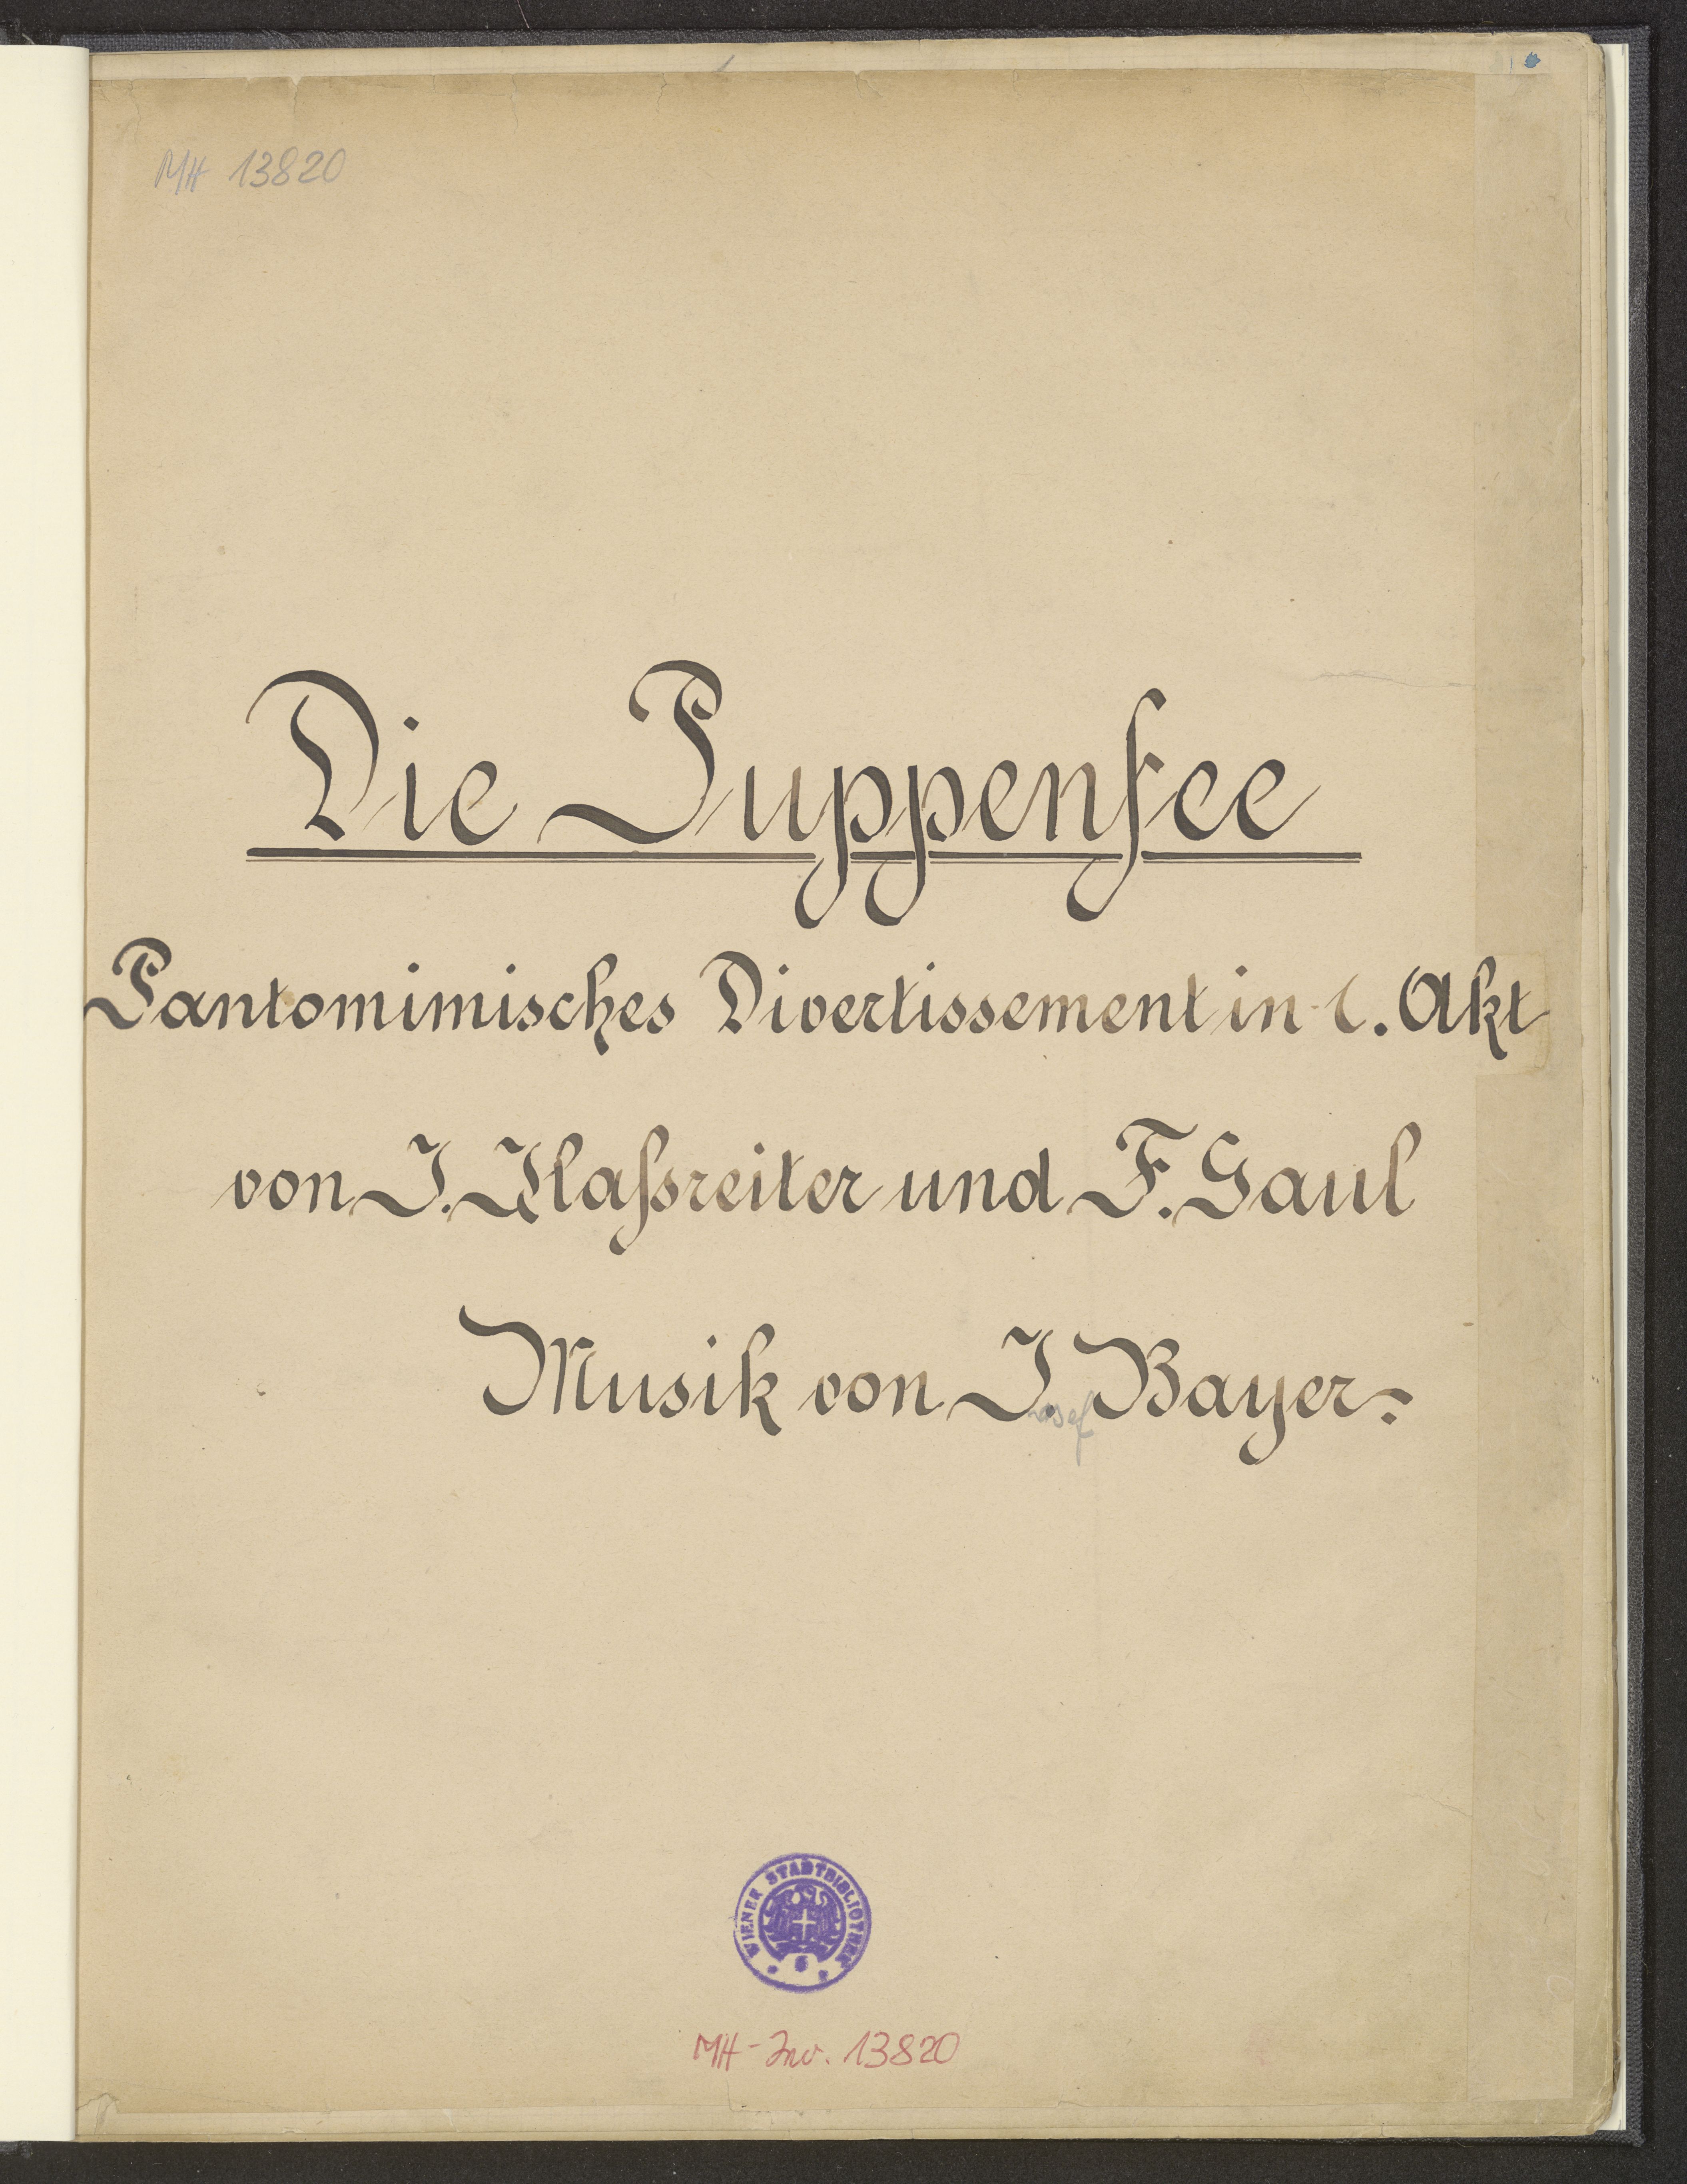 MH 13820
Die Puppenfee
Pantomimisches Divertissement in 1. Akt
von J. Haßreiter und F. Gaul
Musik von J. Bayer.
osef
WIENER STADTBIBLIOTHEK
MH-Inv. 13820